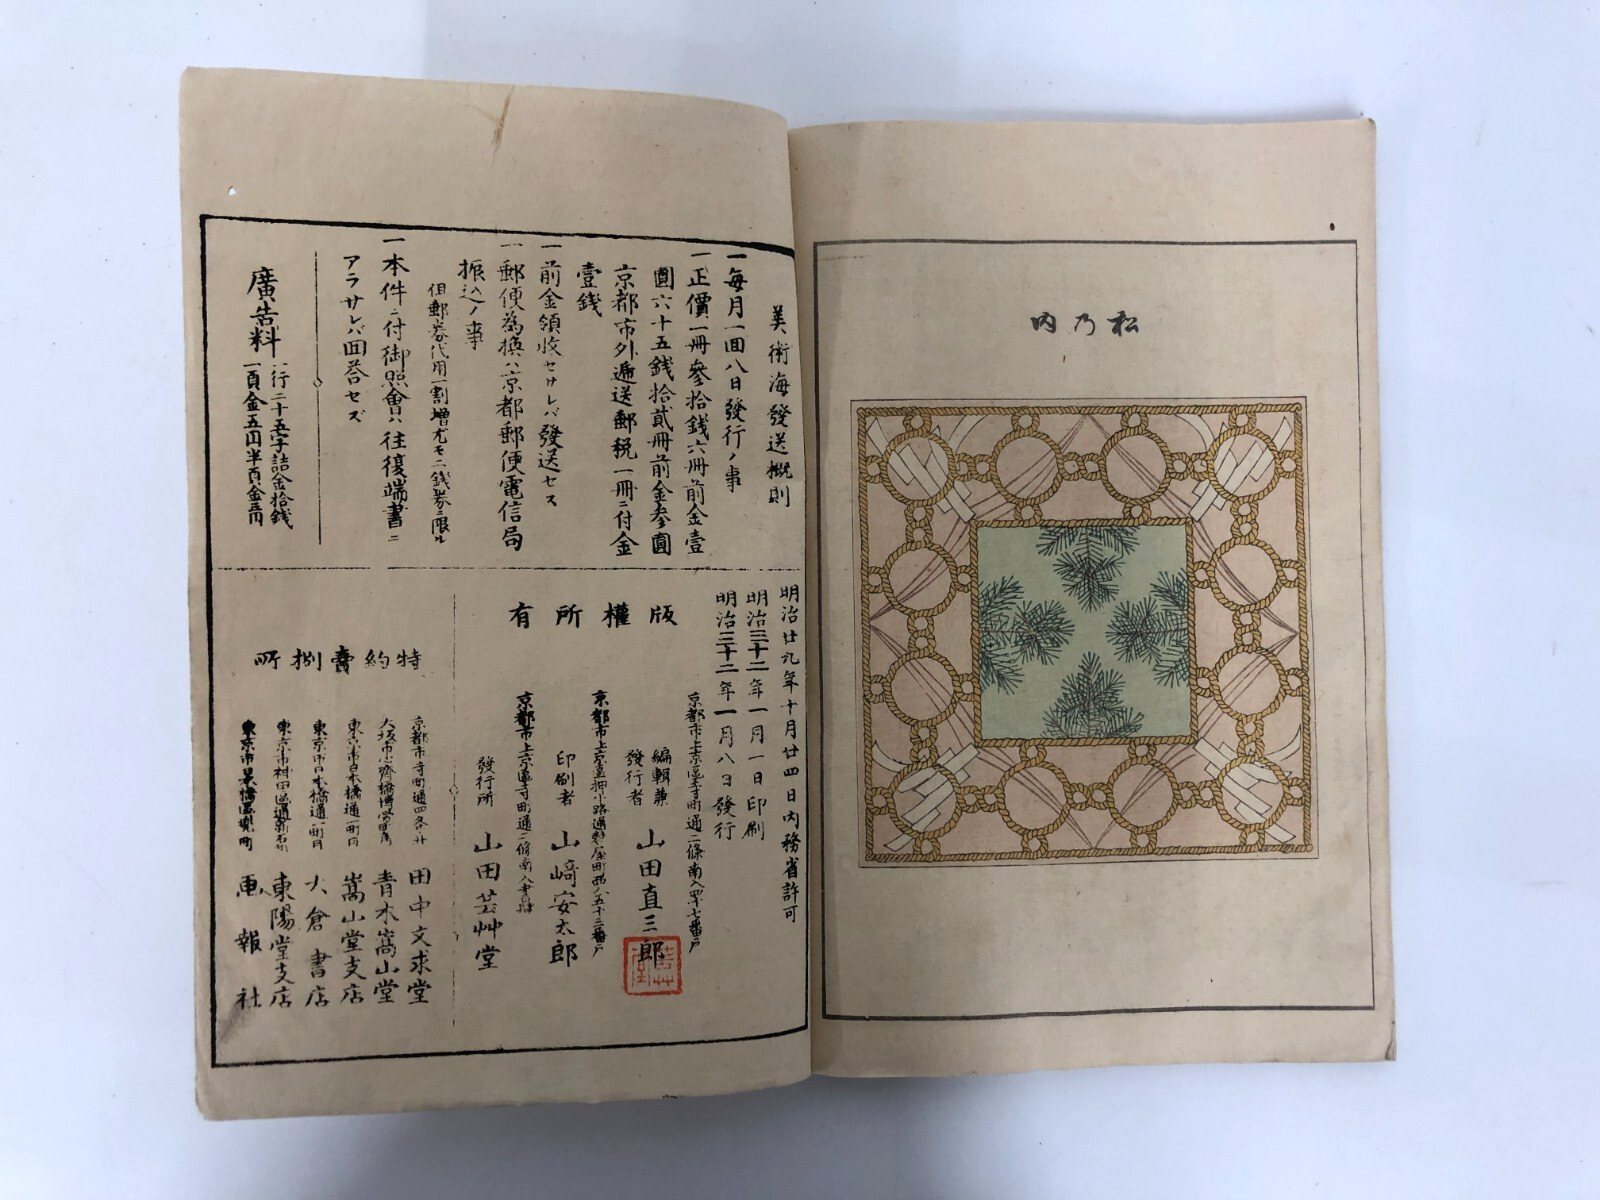 松乃内
美術海發送概則
一毎月一回八日發行ノ事
一正價一冊參拾銭六冊前金壹
圓六十五銭拾貳冊前金參圓
京都市外遞送郵税一冊ニ付金
壹銭
一前金領收セサレバ發送セス
一郵便為換ハ京都郵便電信局
振込ノ事
但郵券代用一割増尤モ二銭券ニ限ル
一本件ニ付御照會ハ往復端書ニ
アラサレバ回答セズ
廣告料
一行二十五字詰金拾銭
一頁金五円半百金三円
明治廿九年十月廿四日内務省許可
明治三十二年一月一日印刷
明治三十二年一月八日發行
版權所有
京都市上京區寺町通二條南入
編輯兼
發行者
山田直三郎
京都市上京區押小路通
印刷者
山﨑安太郎
京都市上京區寺町通二條南入
發行所
山田芸艸堂
特約賣捌所
京都市寺町通四条
田中文求堂
大坂市心齊橋博労町
青木嵩山堂
東京市日本橋通一町目
嵩山堂支店
東京市日本橋通一町目
大倉書店
東京市神田區通新石町
東陽堂支店
東京市京橋區
画報社
芸艸堂